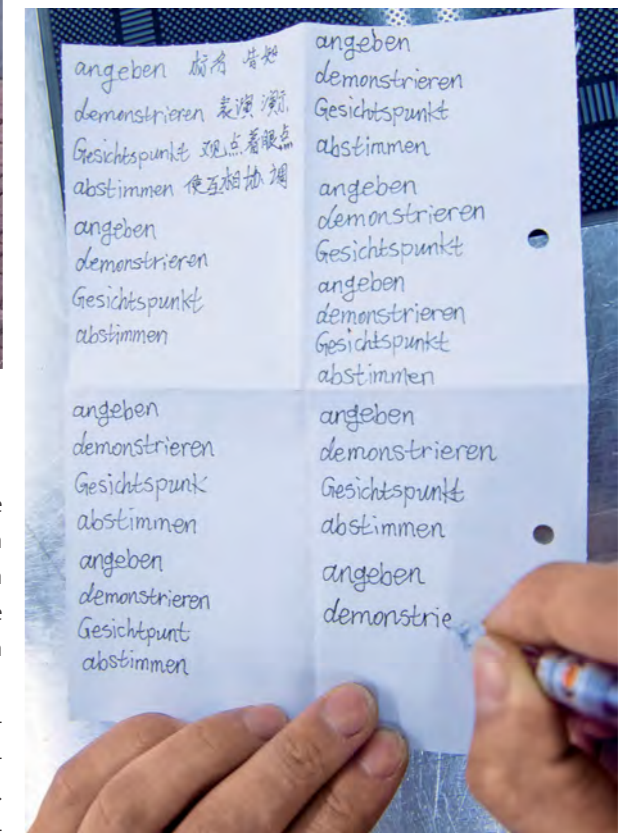 angeben 告知
demonstrieren 表演 演示
Gesichtspunkt 观点着眼点
abstimmen 使互相协调
angeben
demonstrieren
Gesichtspunkt
abstimmen
angeben
demonstrieren
Gesichtspunk
abstimmen
angeben
demonstrieren
Gesichtpunt
abstimmen
angeben
demonstrieren
Gesichtspunkt
abstimmen
angeben
demonstrieren
Gesichtspunkt
angeben
demonstrieren
Gesichtspunkt
abstimmen
angeben
demonstrieren
Gesichtspunkt
abstimmen
angeben
demonstrie